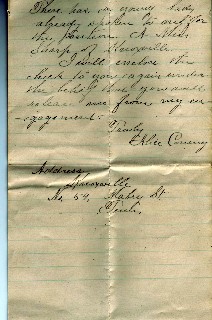 There has a young lady
already spoken to me for
the position. A Miss
Sharp of Knoxville.
I will enclose the
check to you again under
the belief that you will
release me from my en-
gagement.
Truly
Alice
Address
Knoxville
No. 59, Mabry St
Tenn.